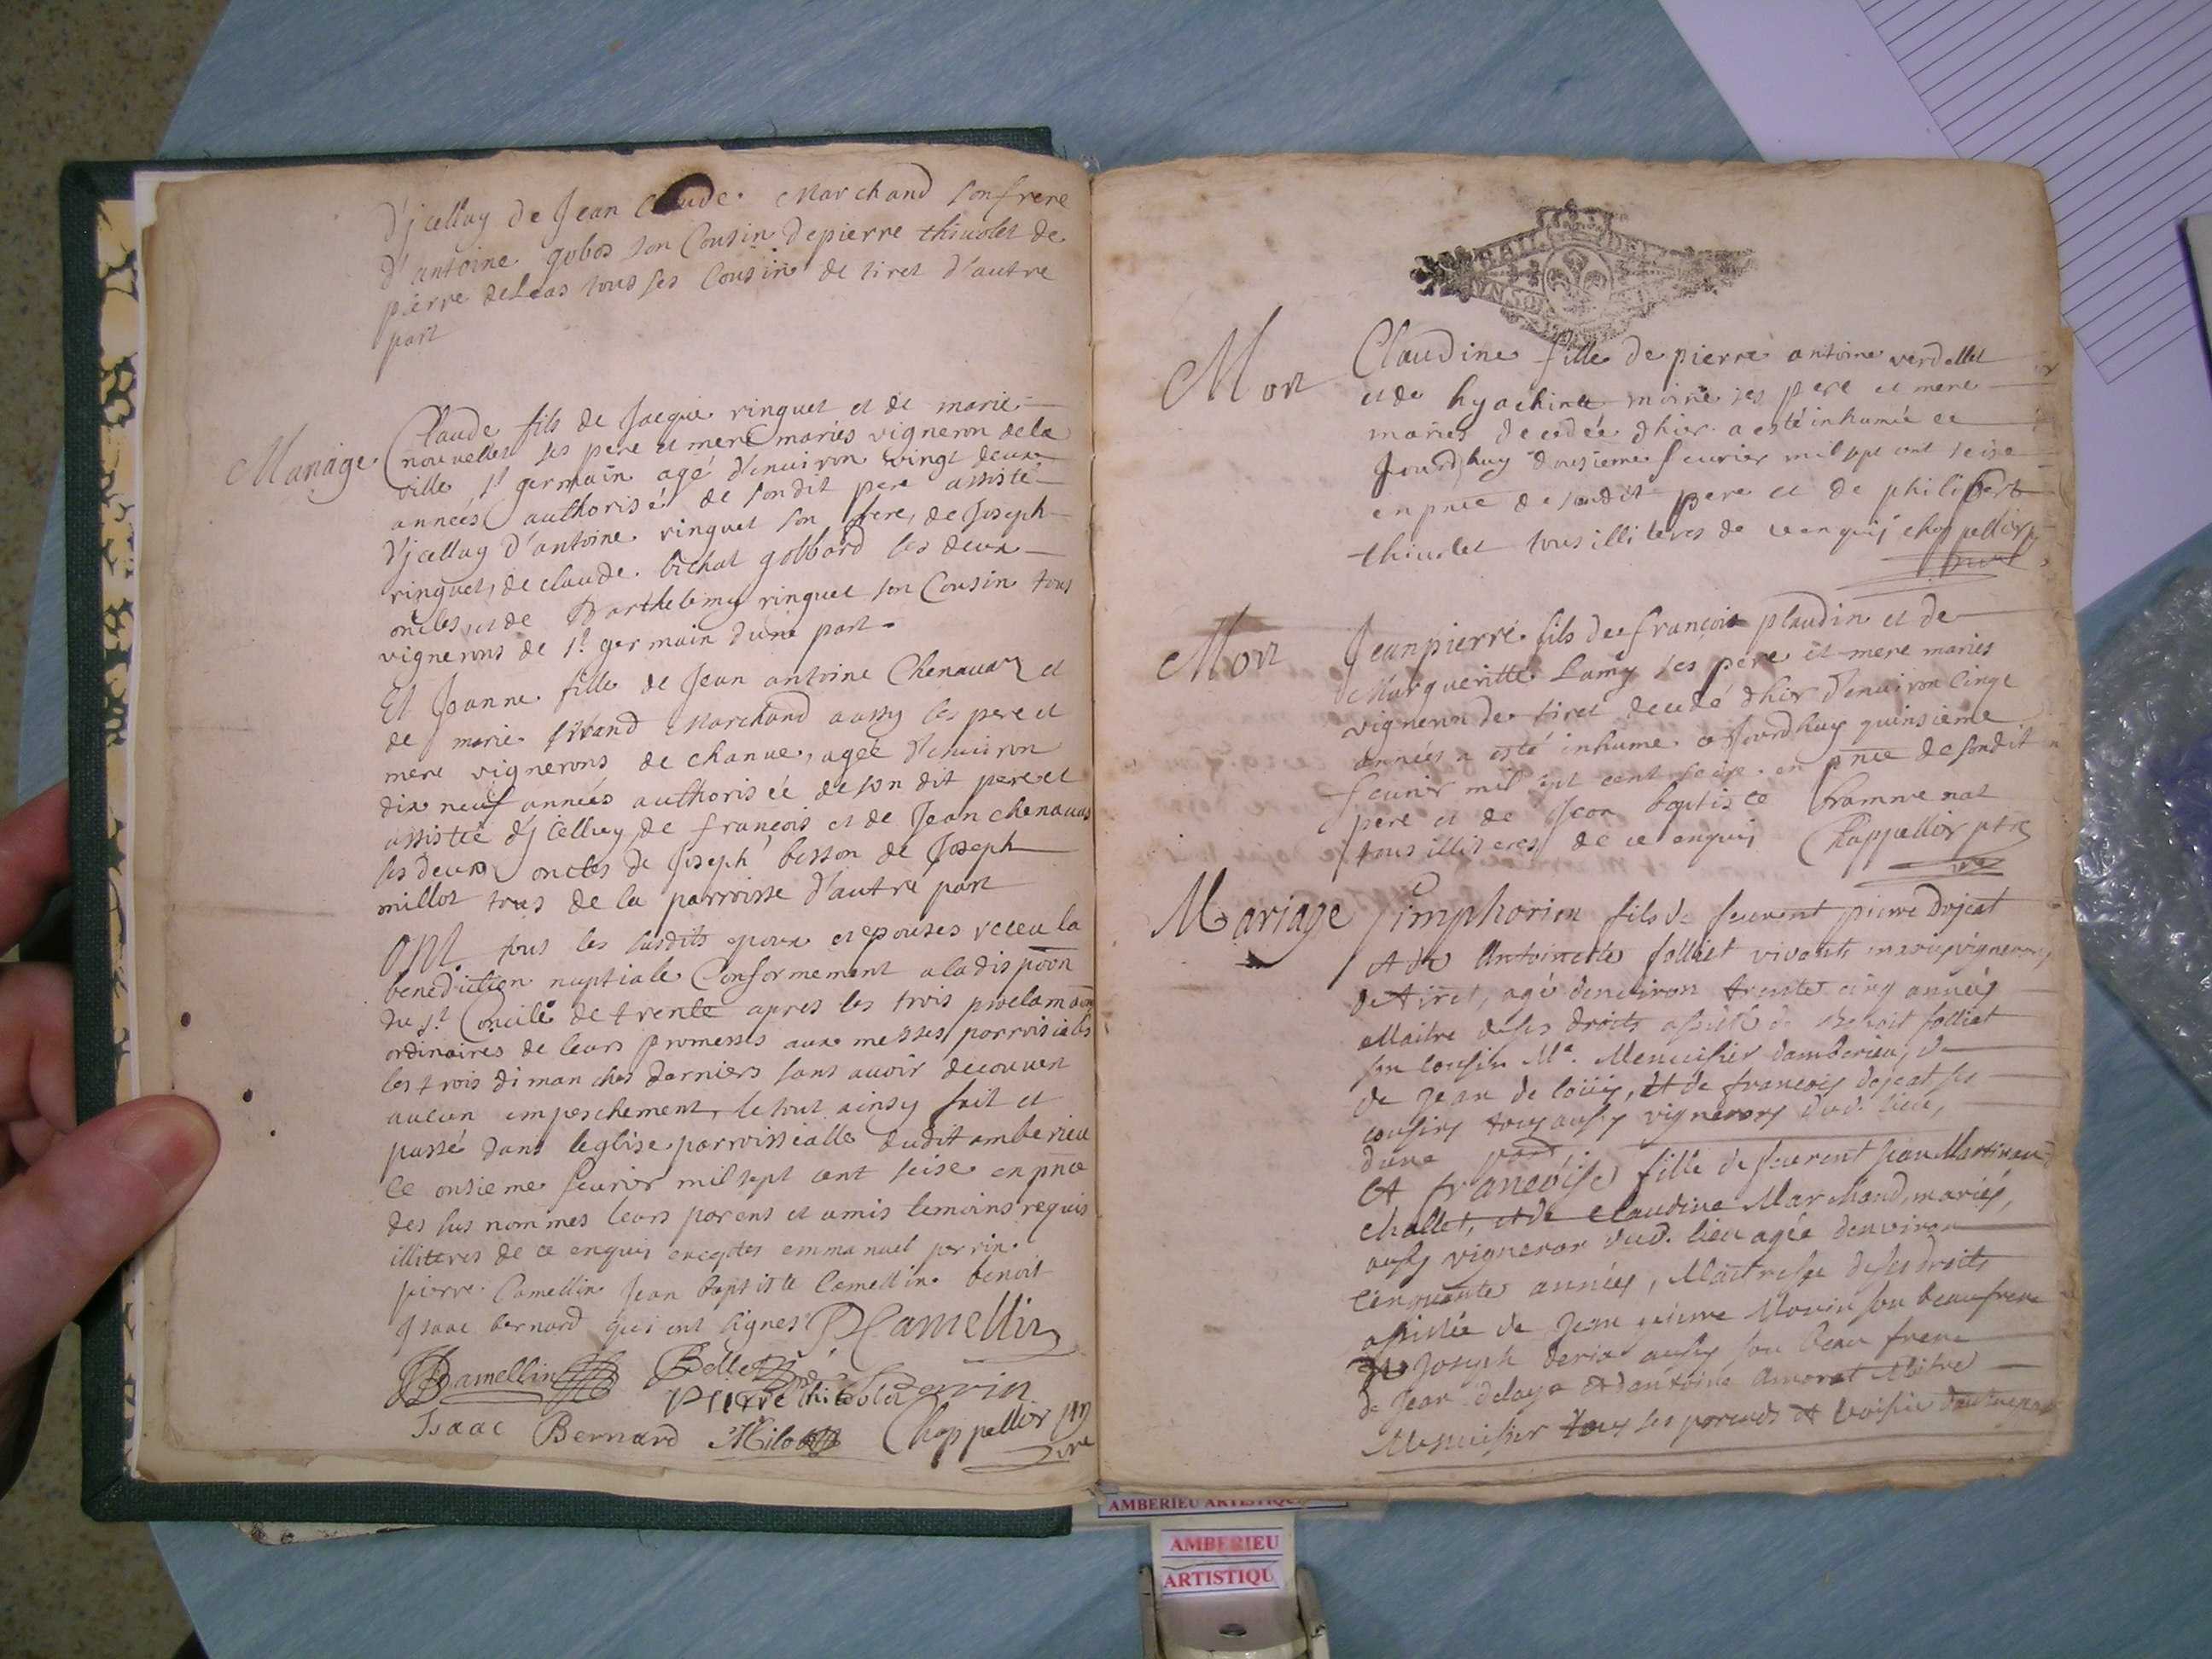 d'jcelluy de Jean Claude Marchand son frere
d'antoine gobos son Cousin de pierre thiuolet de
pierre deleas tous ses Cousins de tiret d'autre
part
Mariage
Claude fils de Jacque ringuet et de marie
nouvellet ses pere et mere maries vigneron de la
ville st germain agé d'enuiron vingt deux
annees authorisé de sondit pere assisté
d'jcelluy d'antoine ringuet son frere, de Joseph
ringuet, de claude bichat gobbard les deux
oncles et de Barthelemy ringuet son Cousin tous
vignerons de st germain d'une part
Et Jeanne fille de Jean antoine Chenauax et
de marie Marchand aussy ses pere et
mere vignerons de chanue, agée d'enuiron
dix neuf années authorisée de son dit pere et
assistée d'jcelluy de françois et de Jean chenauax
les deux oncles de Joseph besson de Joseph
millot tous de la parroisse d'autre part
Ont tous les susdits epoux et epouses receu la
benediction nuptiale Conformement a la dispoon
du st Concile de trente apres les trois proclamaons
ordinaires de leurs promesses aux messes parroisiales
les trois dimanches derniers sans auoir decouuert
aucun empeschement, le tout ainsy fait et
passé dans leglise parroissialle dudit amberieu
ce onsieme feurier mil sept cent seise en pnce
des sus nommes leurs parens et amis temoins requis
illiteres de ce enquis exceptes emmanuel perrin
pierre Camellin Jean baptiste Camellin benoit
Isaac bernard qui ont signes PCamellin
JBCamellin Bellet Perrin
pierre thiuolet
Isaac Bernard Milot Chappellier ptre
Mort
Claudine fille de pierre antoine verdellet
et de hyachinte moine ses pere et mere
maries decedée d'hier a esté inhumée ce
Jourdhuy dousieme feurier mil sept cent seise
en pnce de sondit pere et de philibert
thiuolet tous illiteres de ce enquis chappellier p
Mort
Jean pierre fils de françois plaudin et de
Margueritte Lamy ses pere et mere maries
vigneron de tiret decedé d'hier d'enuiron Cinq
années a esté inhume ce Jourdhuy quinsieme
feurier mil sept cent seise en pnce de sondit
pere et de Jean baptiste brammerat
tous illiteres de ce enquis Chappellier ptre
Mariage
Simphorien fils de feurent pierre Dojeat
et de Antoinette folliet vivants mariés vignerons
de tiret, agé denuiron trente cinq années
Maitre de ses droits assisté de Benoit folliet
son cousin Me. Menuisier damberieu, de
de Jean de loüis, et de francois dojeat ses
cousins tous aussy vignerons dud. lieu,
dune part;
et francoise fille de feurent Jean Martinand
chollet, et de Claudine Marchand, mariés,
aussy vigneron dud. lieu agée denviron
cinquante années, Maitresse de ses droits
assistée de Jean pierre Morin son beaufrere
de Joseph derix aussy son beau frere
de Jean delaye et dantoine Amorat Maitre
Menuisier tous ses parends et voisin dautrepart
AMBERIEU ARTISTIQUE
AMBERIEU
ARTISTIQU